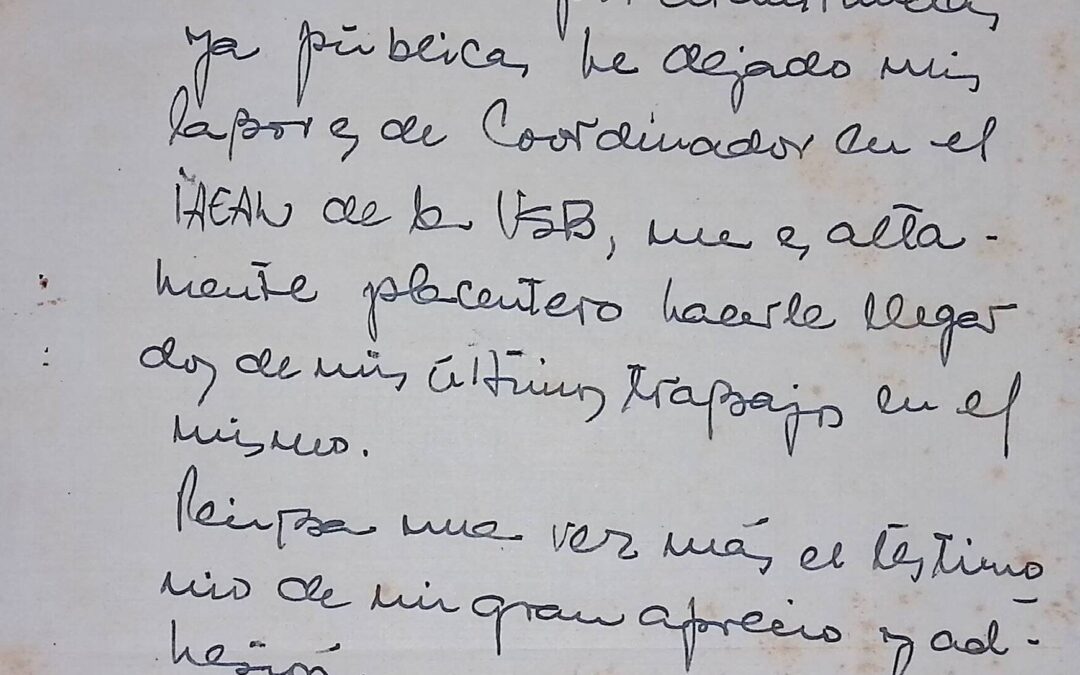 ya pública, he dejado mis
labores de Coordinador en el
IAEAL de la USB, me es alta-
mente placentero hacerle llegar
dos de mis últimos trabajos en el
mismo.
Reciba una vez más el testimo
nio de mi gran aprecio y ad-
hesión